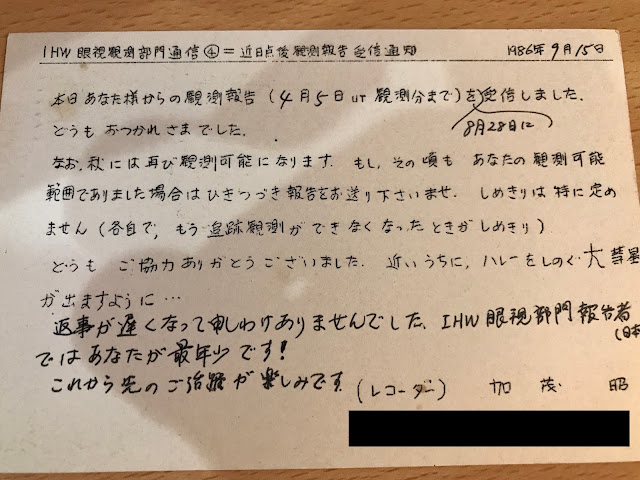 IHW 眼視観測部門通信④=近日点後観測報告受信通知 1986年9月15日
本日あなた様からの観測報告(4月5日UT観測分まで)を受信しました.
8月28日に
どうもおつかれさまでした.
なお,秋には再び観測可能になります.もし,その頃も あなたの観測可能
範囲でありました場合はひきつづき報告をお送り下さいませ. しめきりは特に定め
ません(各自で,もう追跡観測ができなくなったときがしめきり)
どうも ご協力ありがとうございました. 近いうちに,ハレーをしのぐ大彗星
が出ますように…
返事が遅くなって申しわけありませんでした。IHW眼視部門報告者
(日本
ではあなたが最年少です!
これから先のご活躍が楽しみです (レコーダー) 加茂 昭